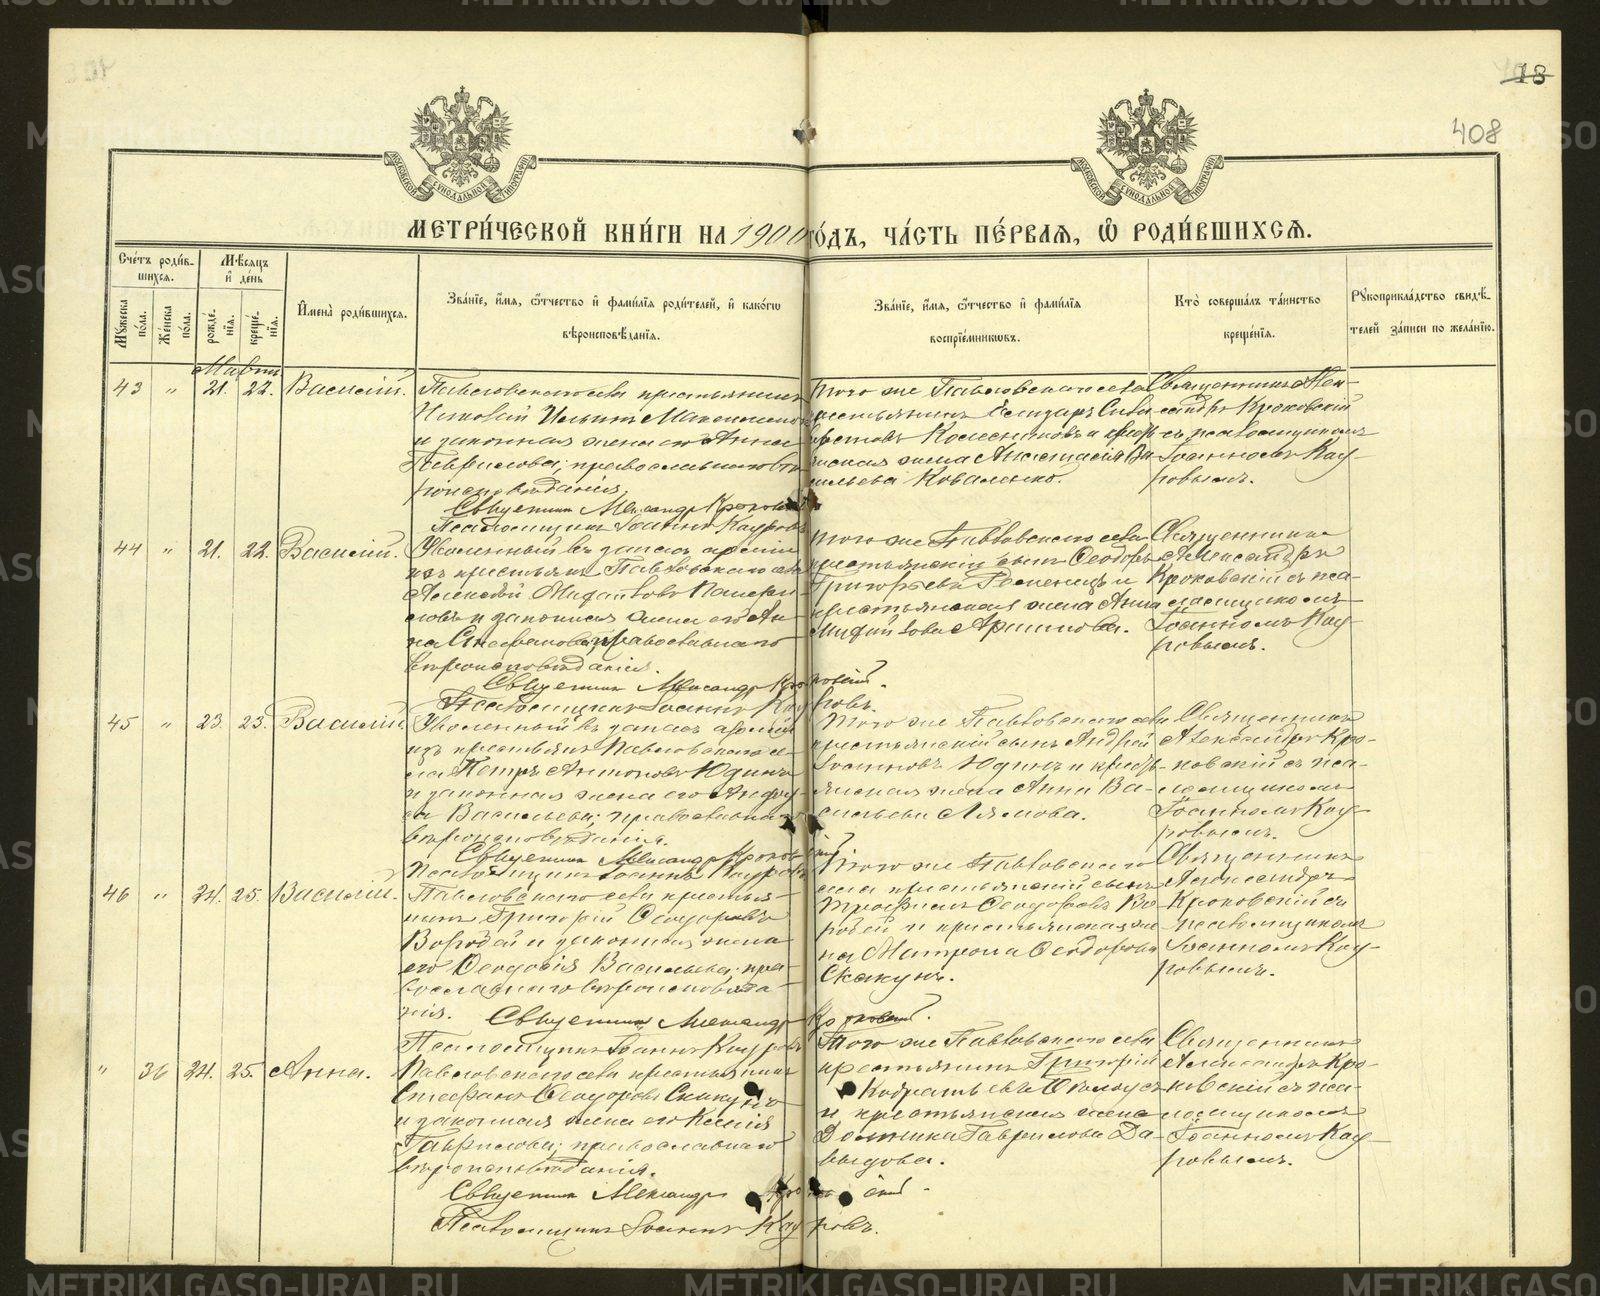 18
408
МОСКОВСКОЙ СѴНОДАЛЬНОЙ ТИПОГРАФІИ
МОСКОВСКОЙ СѴНОДАЛЬНОЙ ТИПОГРАФІИ
МЕТРИ́ЧЕСКОЙ КНИ́ГИ НА 1900 ГО́ДЪ, ЧА́СТЬ ПЕ́РВАЯ, Ѡ҆ РОДИ́ВШИХСЯ.
Сче́тъ роди́в-
шихся.
Мѣ́сяцъ
и҆ де́нь
Мꙋ́жеска по́ла.
Же́нска по́ла.
рожде́-нїя.
креще́-нїя.
И҆мена̀ роди́вшихся.
Зва́нїе, и҆́мя, ѻ҆́тчество и҆ фами́лїя роди́телей, и҆ како́гѡ
вѣроисповѣ́данїя.
Зва́нїе, и҆́мя, ѻ҆́тчество и҆ фами́лїя
воспрїе́мникѡвъ.
Кто̀ соверша́лъ та́инство
креще́нїя.
Рꙋкоприкла́дство свидѣ́-
телей за́писи по жела́нїю.
43 " 21. 22. Василій.
Павловскаго села крестьянинъ
и законная жена его Анна
Гаврилова; православнаго вѣ-
роисповѣданія.
Священник Александр Кроковскій
Псаломщикъ Іоаннъ Кауровъ
Того же Павловскаго села
Колесниковъ и кресть-
янская жена Анастасія Ва-
сильева Коваленко.
Священникъ Алек-
сандръ Кроковскій
съ псаломщикомъ
Іоанномъ Кау-
ровымъ.
44 " 21. 22. Василій.
Уволенный въ запасъ арміи
изъ крестьянъ Павловскаго села
Алексѣй
и законная жена его Ан-
на Стефанова; православнаго
вѣроисповѣданія.
Священник Александр Кроковскій.
Псаломщикъ Іоаннъ Кауровъ.
Того же Павловскаго села
крестьянскій сынъ Ѳеодоръ
Григорьевъ и
крестьянская жена Анна
Священникъ
Александръ
Кроковскій съ пса-
ломщикомъ
Іоанномъ Кау-
ровымъ.
45 " 23. 23. Василій.
Уволенный въ запасъ арміи
изъ крестьянъ Павловскаго се-
ла Петръ Антоновъ Юдинъ
и законная жена его
Васильева; православнаго
вѣроисповѣданія.
Священник Александр Кроковскій
Псаломщикъ Іоаннъ Кауровъ
Того же Павловскаго села
крестьянскій сынъ Андрей
Іоанновъ Юдинъ и кресть-
янская жена Анна Ва-
сильева Лямова.
Священникъ
Александръ Кро-
ковскій съ пса-
ломщикомъ
Іоанномъ Кау-
ровымъ.
46 " 24. 25. Василій.
Павловскаго села крестья-
нинъ Григорій Ѳеодоровъ
и законная жена
его Ѳеодосія Васильева; пра-
вославнаго вѣроисповѣда-
нія.
Священник Александр Кроковскій.
Псаломщикъ Іоаннъ Кауровъ
Того же Павловскаго
села крестьянскій сынъ
Трофимъ Ѳеодоровъ
и крестьянская же-
на Матрона Ѳеодорова
Скакунъ.
Священникъ
Александръ
Кроковскій съ
псаломщикомъ
Іоанномъ Кау-
ровымъ.
" 36 24. 25. Анна.
Павловскаго села крестьянинъ
Стефанъ Ѳеодоровъ Скакунъ
и законная жена его Ксенія
Гаврилова; православнаго
вѣроисповѣданія.
Священник Александр Кроковскій.
Псаломщикъ Іоаннъ Кауровъ.
Того же Павловскаго села
крестьянинъ Григорій
Кодратьевъ
и крестьянская жена
Домника Гаврилова Да-
выдова.
Священникъ
Александръ Кро-
ковскій съ пса-
ломщикомъ
Іоанномъ Кау-
ровымъ.
METRIKI.GASO-URAL.RU
METRIKI.GASO-URAL.RU